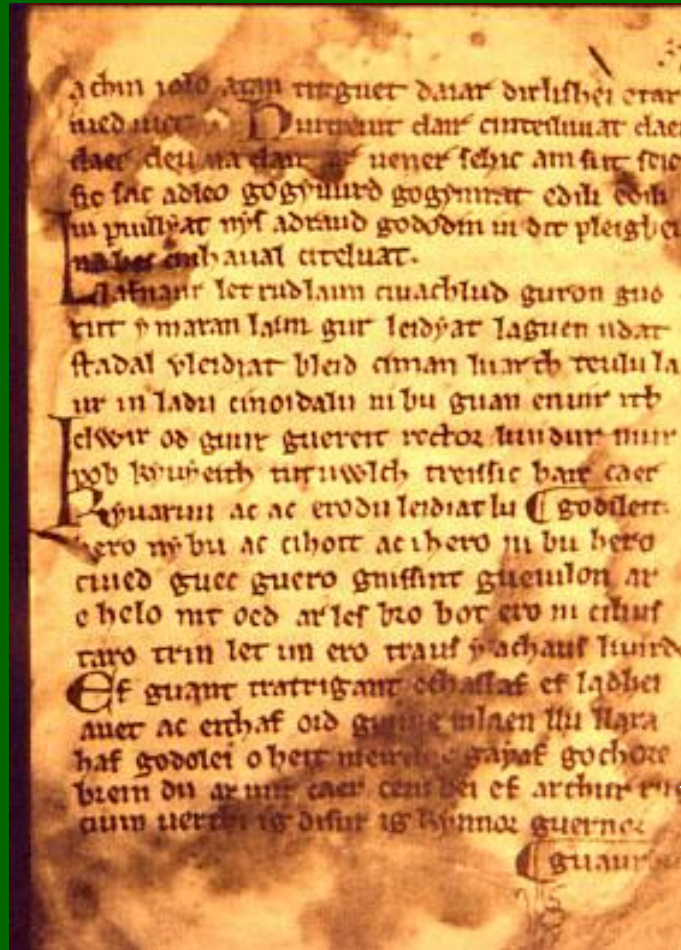 achin iolo atan tinguet daiar dirlishei etar
med met Huitreuit clair cinteiluuat claer
claer cleu na clair uener sehic am sut seic
sic sac adleo gogyuurd gogymrat edili edili
ui puillyat nys adraud gododin in dit pleigheit
na bei cinhaual citeluat.
Llafnaur let rud laun ciuachlud guron guo
rut y maran laun gur leidyat laguen udat
stadal vleidiat bleid ciman luarch teulu la
ur in ladu cinoidalu ni bu guan enuir ith
elwir od guur guereit rector liuidur mur
pob kyuyeith tutuwlch treissic hair caer
Ryuaruu ac ac erodu leidiat lu godilett
hero ny bu ac cihoit ac i hero ni bu hero
ciued guec guero gnissint gueuilon ar
e helo nit oed ar les bro bot ero ni cilius
taro trin let un ero traus y achaus liuirdo
Ef guant tratrigant echassaf ef ladhei
auet ac eithaf oid guiu e mlaen llu llara
haf godolei o heit meirch e gayaf gochore
brein du ar uur caer ceni bei ef arthur rug
cium uerthi ig disur ig kynnor guernor
guaur